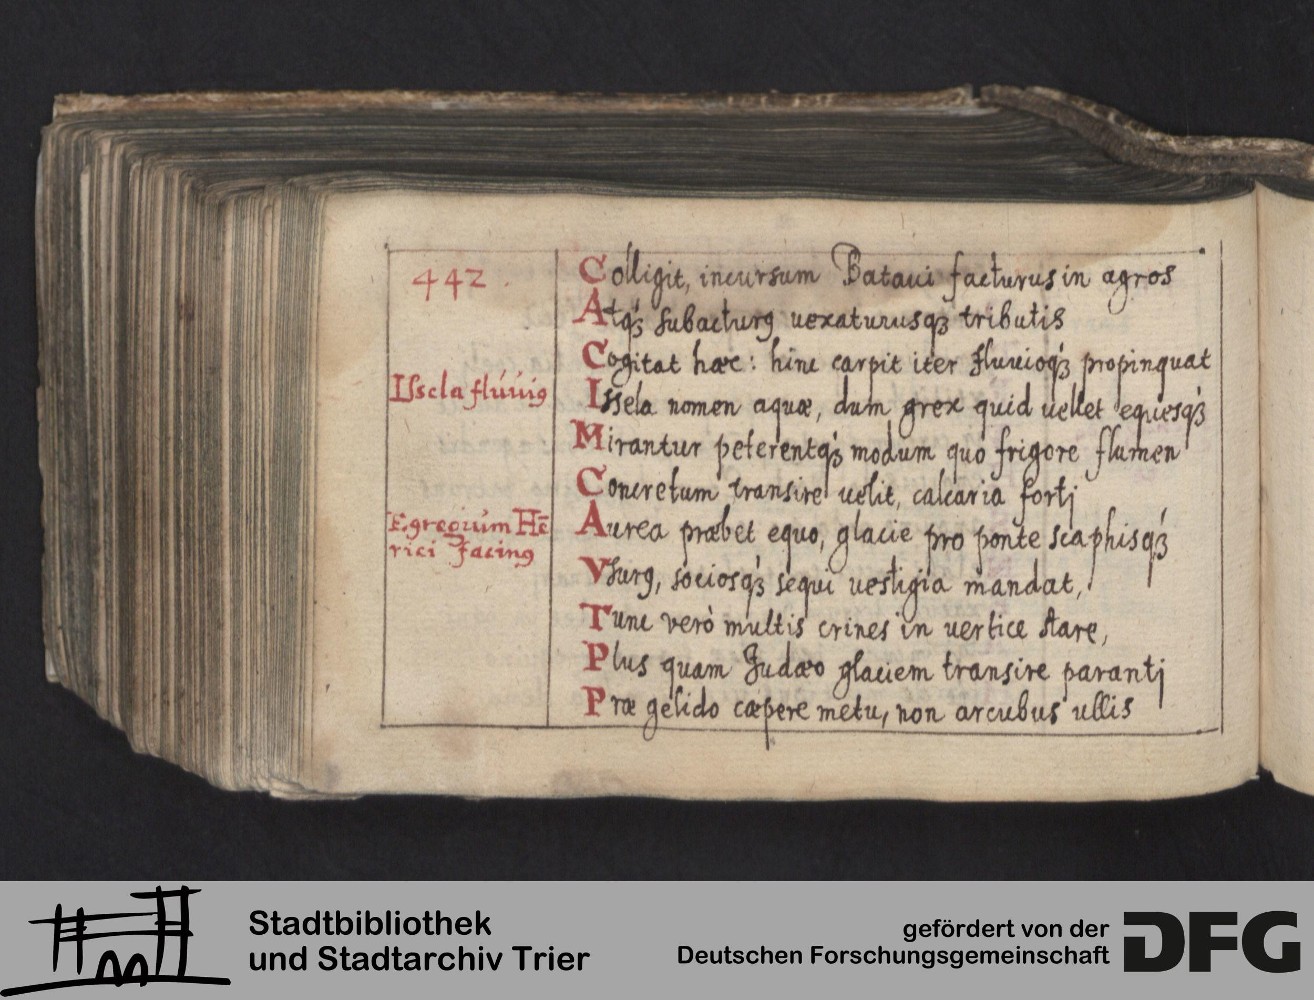 442.
Colligit, incursum Bataui facturus in agros
Atq́ꝫ subacturꝰ uexaturusqꝫ tributis
Cogitat hæc: hinc carpit iter fluuioq́ꝫ propinquat
Issela flúuiꝰ
Issela nomen aquæ, dum grex quid uellet equesq́ꝫ
Mirantur peterentq́ꝫ modum quo frigore flumen
Concretum transire uelit, calcaria forti
Egregium Hē
rici facinꝰ
Aurea præbet equo, glacie pro ponte scaphisq́ꝫ
Vsurꝰ, sociosq́ꝫ sequi uestigia mandat,
Tunc verò multis crines in uertice stare,
Plus quam Judæo glaciem transire paranti
Præ gelido cæpere metu, non arcubus ullis
Stadtbibliothek
und Stadtarchiv Trier
gefördert von der
Deutschen Forschungsgemeinschaft
DFG